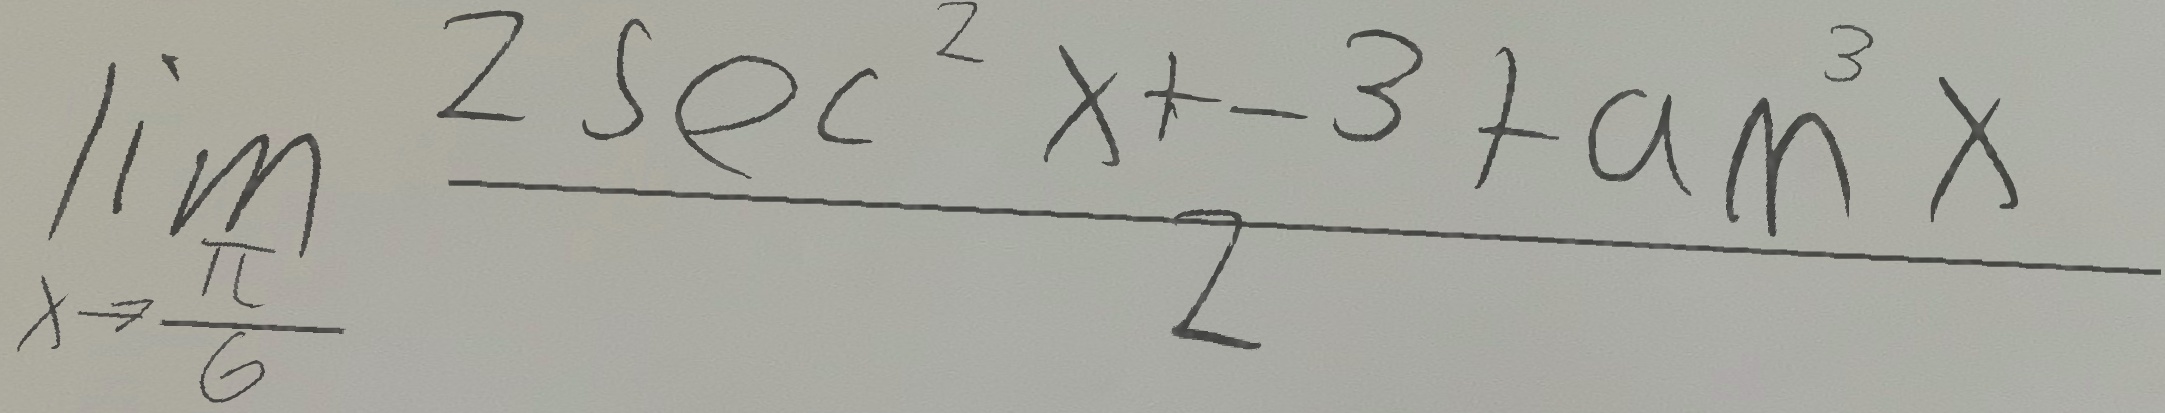 lim x→π/6 (2 sec² x + -3 tan³ x)/2